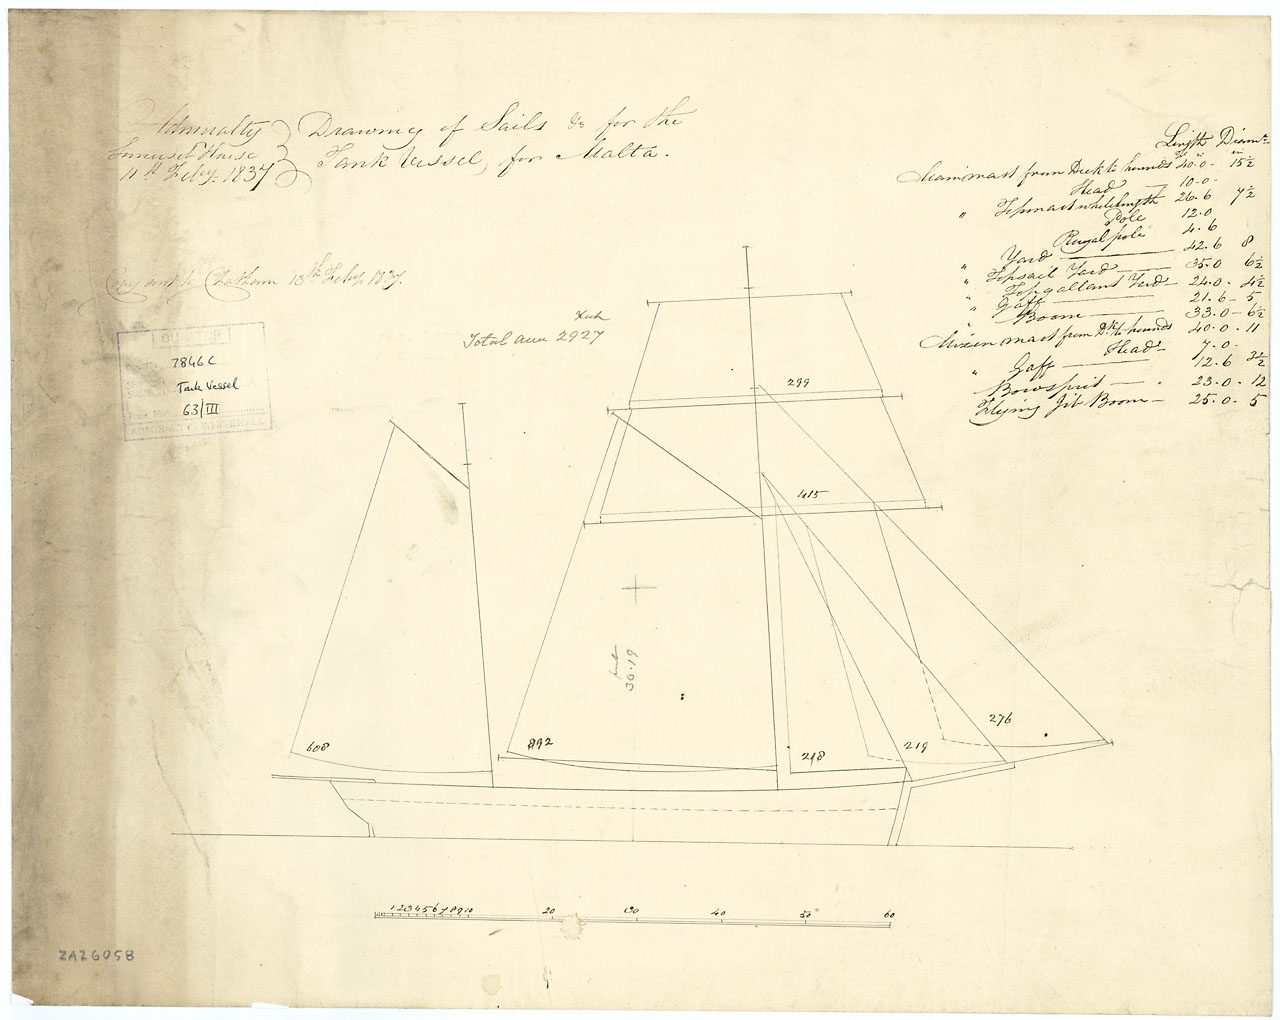 Admiralty
Somerset House
11th Feby. 1837
Drawing of Sails &c for the
Tank Vessel, for Malta.
Copy sent to Chatham 13th Feby 1837.
7846 C
Tank Vessel
63/III
ADMIRALTY WHITEHALL
Total area 2927
Length Diamr
Ft in in
Main mast from Deck to hounds 40.0 - 15½
Head — 10.0 -
" Topmast whole length 26.6 7½
Pole 12.0
Royal pole 4.6
" Yard — 42.6 8
" Topsail Yard — 35.0 6½
" Topgallant Yard — 24.0 - 4½
" Gaff — 21.6 - 5
" Boom — 33.0 - 6½
Mizen mast from Dk to hounds 40.0 . 11
Head - 7.0 -
" Gaff — 12.6 3½
Bowsprit — . 23.0 . 12
Flying Jib Boom — 25.0 . 5
299
415
608
892
218
219
276
30.19
1 2 3 4 5 6 7 8 9 10 20 30 40 50 60
ZAZ6058